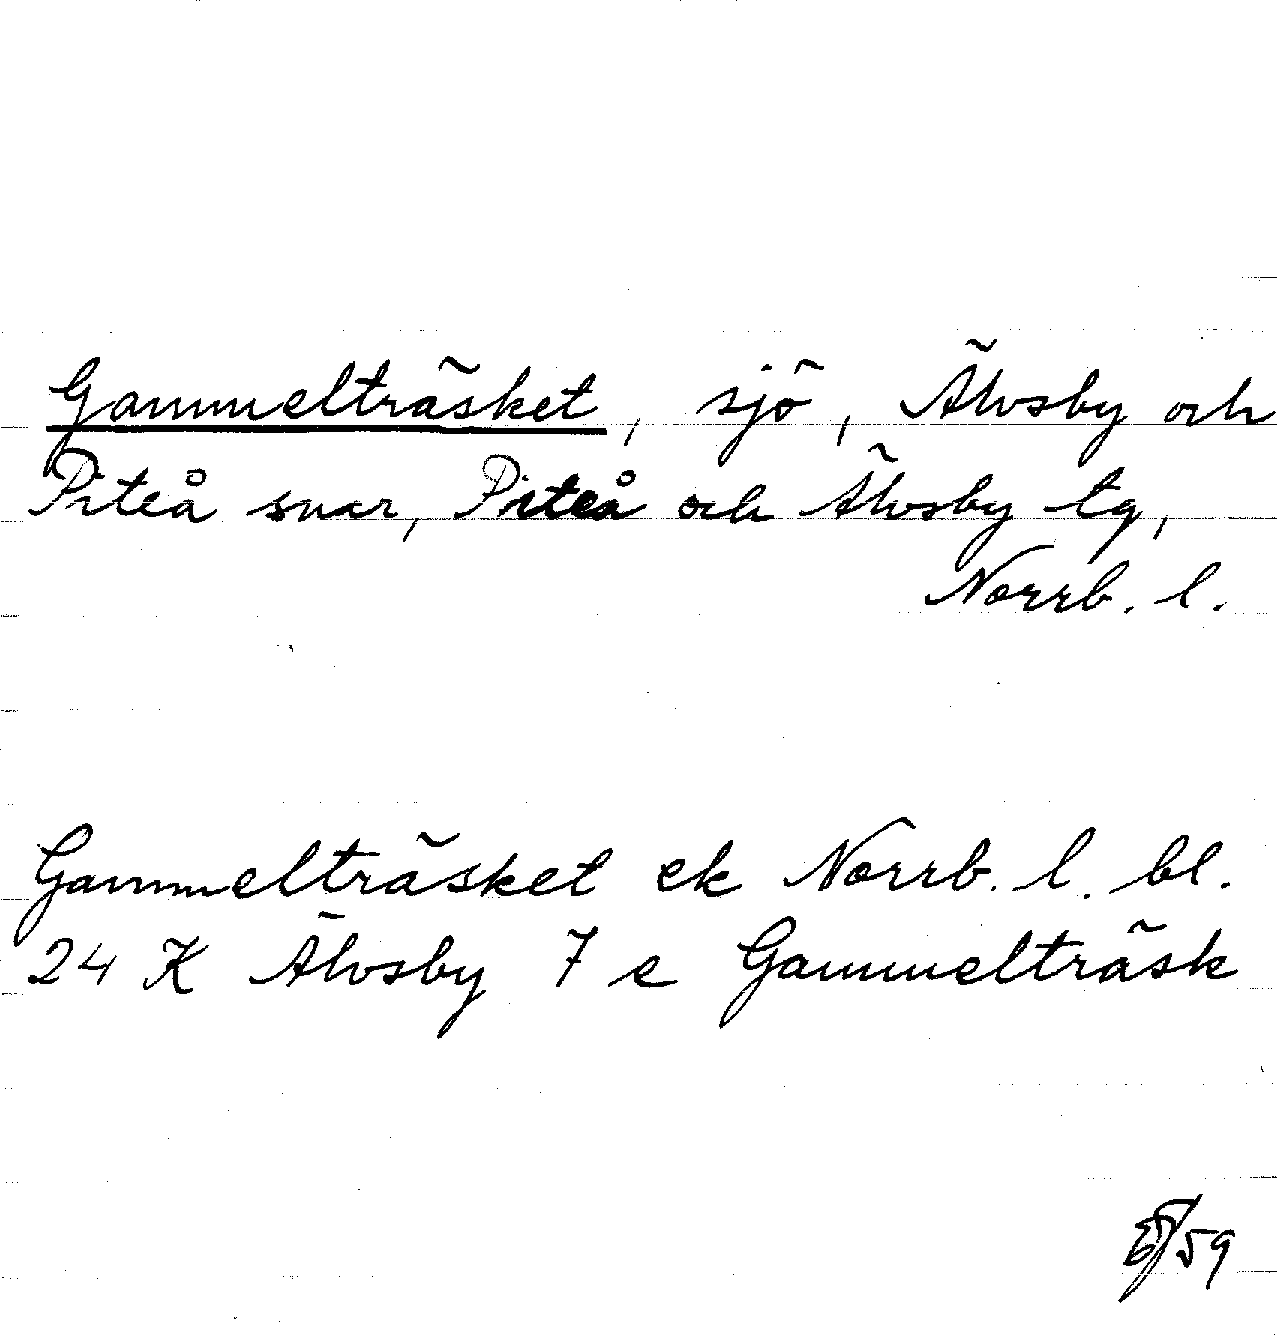 Gammelträsket, sjö, Älvsby och
Piteå snar, Piteå och Älvsby tg,
Norrb. l.
Gammelträsket ek Norrb. l. bl.
24 K Älvsby 7 e Gammelträsk
59